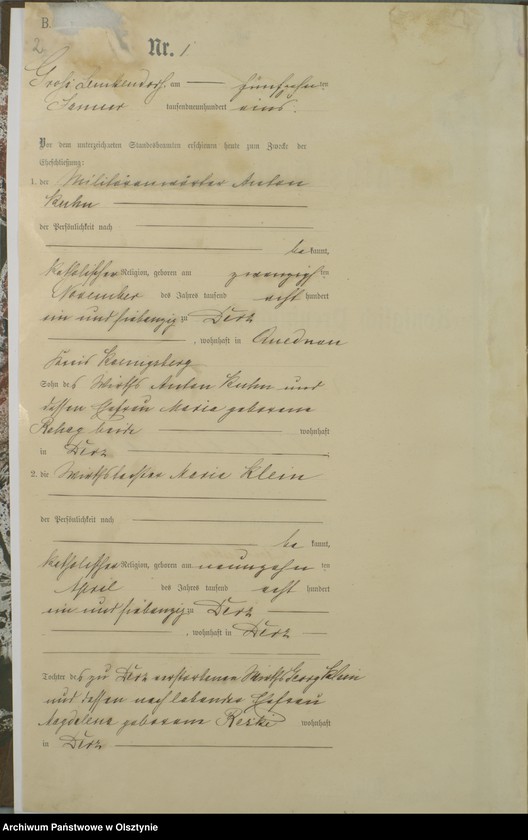 B.
2
Nr. 1
Groß Lemkendorf, am fünfzehnten
Januar tausendneunhundert eins.
Vor dem unterzeichneten Standesbeamten erschienen heute zum Zwecke der
Eheschließung:
1. der Militäranwärter Anton
Kuhn
der Persönlichkeit nach
be kannt,
katholischer Religion, geboren am zwanzigsten
November des Jahres tausend acht hundert
ein und siebenzig zu Derz
, wohnhaft in
Kreis Koenigsberg
Sohn des Wirths Anton Kuhn und
dessen Ehefrau Maria geborene
beide wohnhaft
in Derz
2. die Wirthstochter Maria Klein
der Persönlichkeit nach
be kannt,
katholischer Religion, geboren am neunzehnten
April des Jahres tausend acht hundert
ein und siebenzig zu Derz
, wohnhaft in Derz
Tochter des zu Derz verstorbenen Wirths Georg Klein
und dessen nach lebender Ehefrau
Magdalena geborene wohnhaft
in Derz
Archiwum Państwowe w Olsztynie